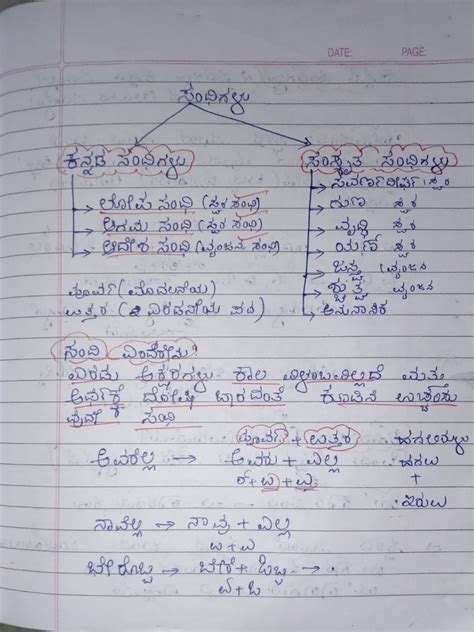 DATE: PAGE:
ಸಂಧಿಗಳು
ಕನ್ನಡ ಸಂಧಿಗಳು ಸಂಸ್ಕೃತ ಸಂಧಿಗಳು
ಲೋಪ ಸಂಧಿ (ಸ್ವರ ಸಂಧಿ) ಸವರ್ಣದೀರ್ಘ ಸ್ವರ
ಆಗಮ ಸಂಧಿ (ಸ್ವರ ಸಂಧಿ) ಗುಣ ಸ್ವರ
ಆದೇಶ ಸಂಧಿ (ವ್ಯಂಜನ ಸಂಧಿ) ವೃದ್ಧಿ ಸ್ವರ
ಯಣ್ ಸ್ವರ
ಜಸ್ತ್ವ (ವ್ಯಂಜನ
ಪೂರ್ವ (ಮೊದಲನೆಯ) ಶ್ಚುತ್ವ (ವ್ಯಂಜನ
ಉತ್ತರ (ಎರಡನೆಯ ಪದ) ಅನುನಾಸಿಕ
ಸಂಧಿ ಎಂದರೇನು?
ಎರಡು ಅಕ್ಷರಗಳು ಕಾಲ ವಿಳಂಬವಿಲ್ಲದೆ ಮತ್ತು
ಅರ್ಥಕ್ಕೆ ದೋಷ ಬಾರದಂತೆ ಕೂಡಿಸಿ ಉಚ್ಚರಿಸು
ವುದೇ ಸಂಧಿ
ಪೂರ್ವ + ಉತ್ತರ ಹಗಲಿರುಳು
ಅವರೆಲ್ಲ → ಅವರು + ಎಲ್ಲ ಹಗಲು
ರ್ + ಉ + ಎ +
ನಾವೆಲ್ಲ → ನಾವು + ಎಲ್ಲ ಇರುಳು
ಉ + ಎ
ಬೇರೊಬ್ಬ → ಬೇರೆ + ಒಬ್ಬ →
ಎ + ಒ